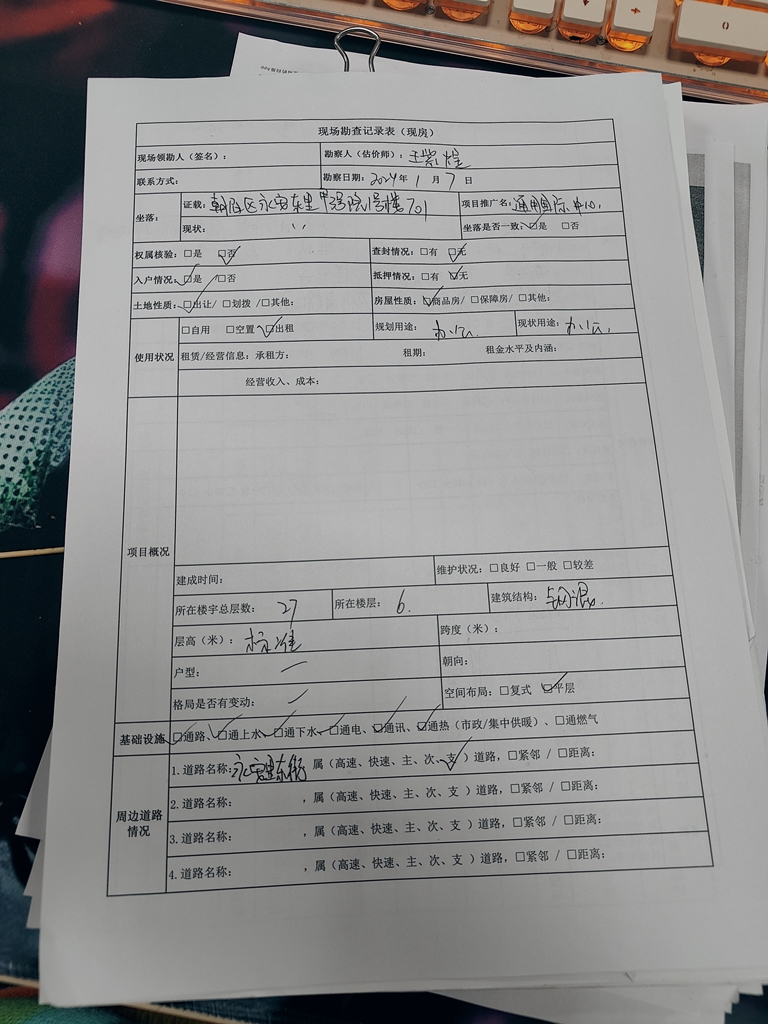 现场勘查记录表（现房）
现场领勘人（签名）： 勘察人（估价师）：
联系方式： 勘察日期：2024年1月7日
坐落： 证载：朝阳区永安东里甲3号院1号楼701 项目推广名：通用国际中心
现状： 〃 坐落是否一致：☑是 □否
权属核验：□是 ☑否 查封情况：□有 ☑无
入户情况：☑是 / □否 抵押情况：□有 ☑无
土地性质：☑出让/ □划拨 /□其他： 房屋性质：☑商品房/ □保障房/ □其他：
使用状况 □自用 □空置 ☑出租 规划用途：办公 现状用途：办公
租赁/经营信息：承租方： 租期： 租金水平及内涵：
经营收入、成本：
项目概况
建成时间： 维护状况：□良好 □一般 □较差
所在楼宇总层数：27 所在楼层：6 建筑结构：钢混
层高（米）：标准 跨度（米）：
户型：／ 朝向：
格局是否有变动：／ 空间布局：□复式 ☑平层
基础设施 ☑通路、☑通上水、☑通下水、☑通电、☑通讯、☑通热（市政/集中供暖）、□通燃气
周边道路情况 1.道路名称：永安里东街 属（高速、快速、主、次、支✓）道路，□紧邻 / □距离：
2.道路名称： ，属（高速、快速、主、次、支 ）道路，□紧邻 / □距离：
3.道路名称： ，属（高速、快速、主、次、支 ）道路，□紧邻 / □距离：
4.道路名称： ，属（高速、快速、主、次、支 ）道路，□紧邻 / □距离：